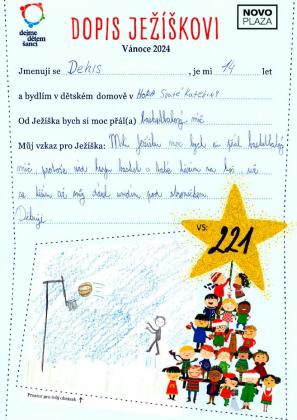 dejme
dětem
šanci
DOPIS JEŽÍŠKOVI
NOVO
PLAZA
Vánoce 2024
Jmenuji se Denis, je mi 14 let
a bydlím v dětském domově v HORA Svaté Kateřiny
Od Ježíška bych si moc přál(a) basketbalový míč
Můj vzkaz pro Ježíška: Milý Ježíšku moc bych si přál basketbalový
míč, protože rád hraju basket a
se až můj dárek uvidím pod stromečkem.
Děkuji
VS:
221
Prostor pro tvůj obrázek ↑